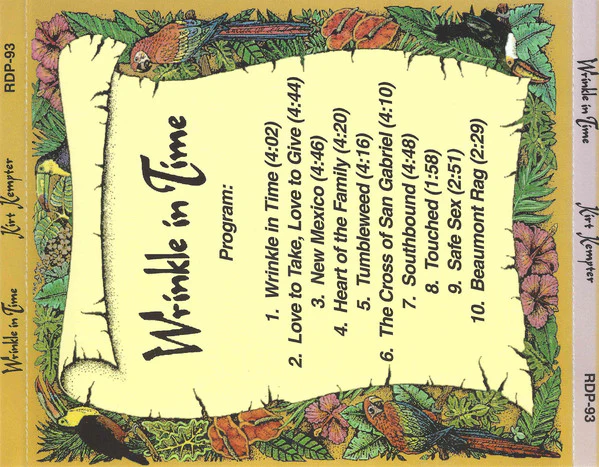 Wrinkle in Time
Kirt Kempter
RDP-93
Wrinkle in Time
Program:
1. Wrinkle in Time (4:02)
2. Love to Take, Love to Give (4:44)
3. New Mexico (4:46)
4. Heart of the Family (4:20)
5. Tumbleweed (4:16)
6. The Cross of San Gabriel (4:10)
7. Southbound (4:48)
8. Touched (1:58)
9. Safe Sex (2:51)
10. Beaumont Rag (2:29)
Wrinkle in Time
Kirt Kempter
RDP-93